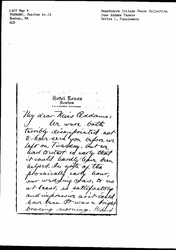 1907 May 8
YEOMANS, Charles to JA
Boston, MA
ALS
Swarthmore College Peace Collection
Jane Addams Papers
Series 1, Supplement
Hotel Lenox
Boston
My dear Miss Addams:
We were both
terribly disappointed not
to have seen you before we
left on Tuesday. But we
had to start so early that
it could hardly have been
helped. In spite of the
physically early hour,
our wedding was, to us
at least, as satisfactory
and impressive as it could
have been. It was a bright
morning.